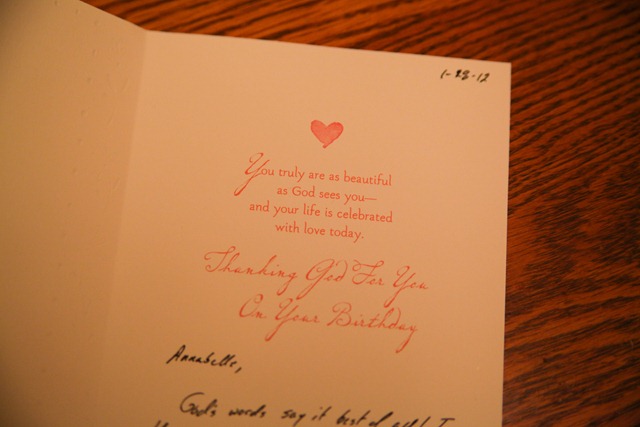 1-28-12
You truly are as beautiful
as God sees you—
and your life is celebrated
with love today.
Thanking God For You
On Your Birthday
Annabelle,
God's words say it best of all! I